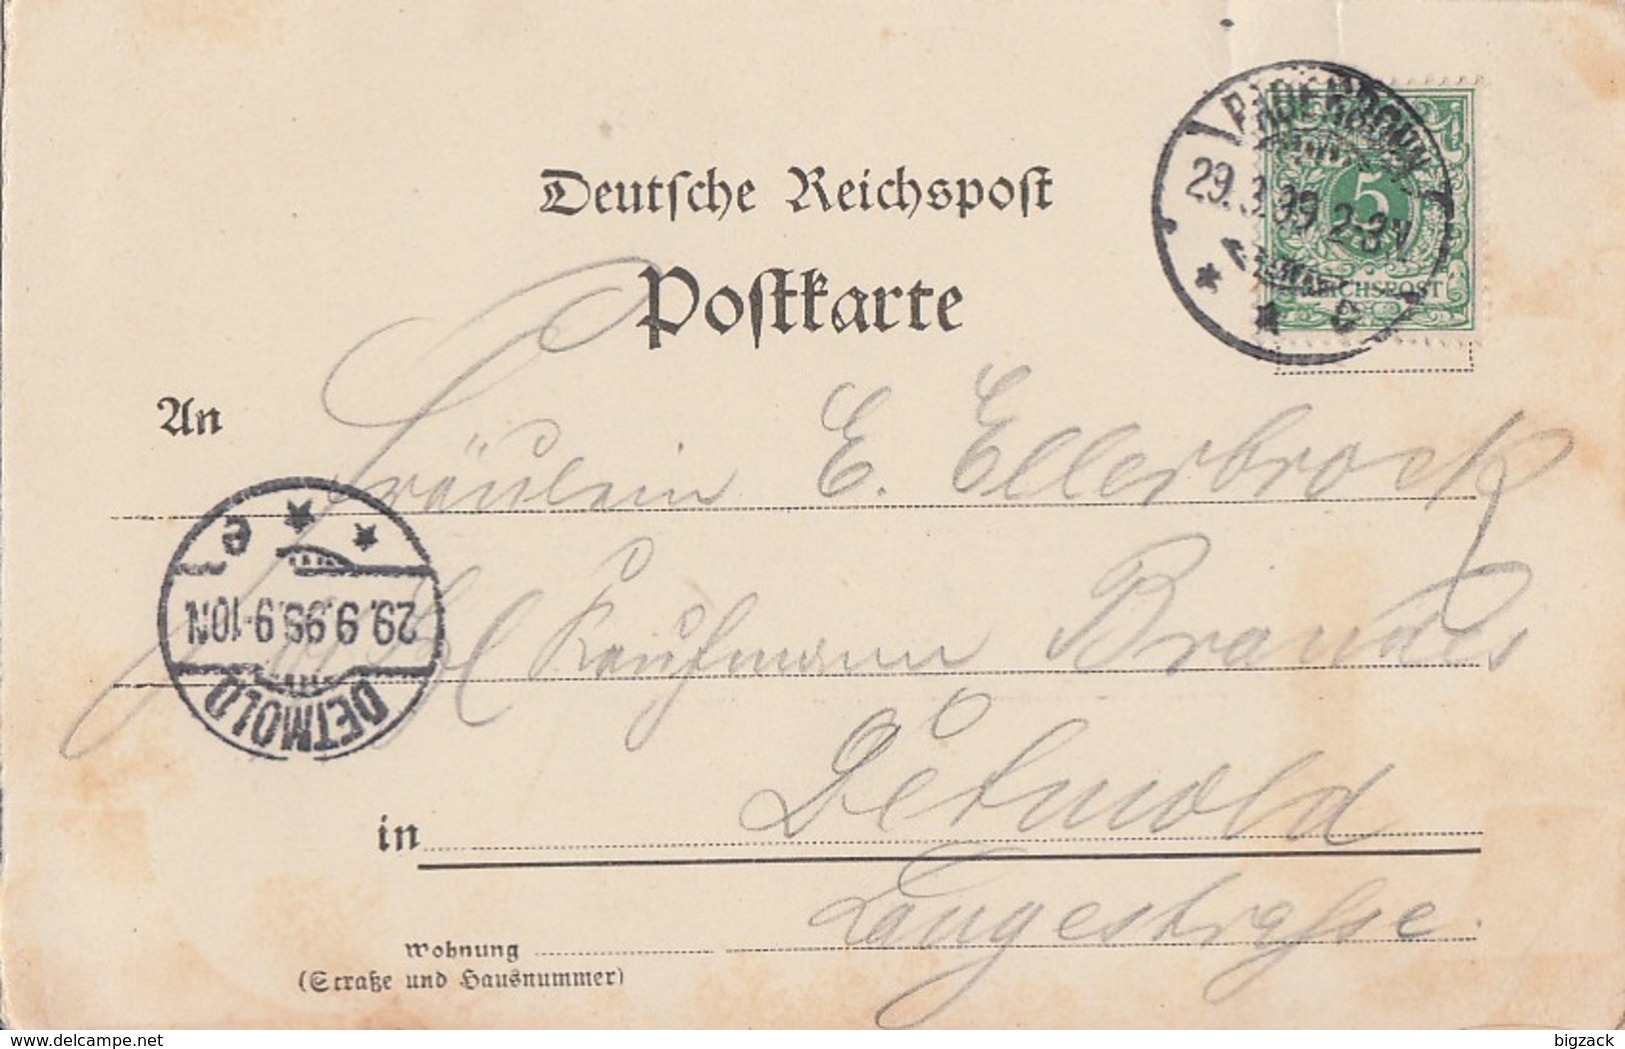 Deutsche Reichspost
Postkarte
PADERBORN
29. 3.99 2-3N
* * c
5
REICHSPOST
An
Fräulein E. Ellerbrock
Kaufmann Brandes
DETMOLD
29. 9.99. 9-10N
* * e
in Detmold
Wohnung Langestraße.
(Straße und Hausnummer)
delcampe.net
bigzack